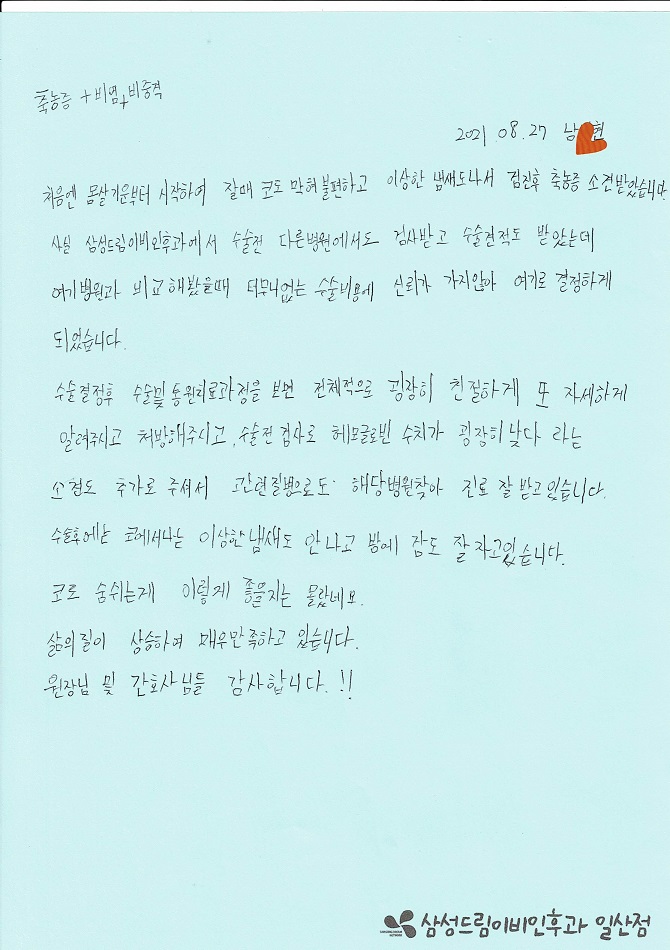 축농증 + 비염 + 비중격
2021. 08. 27 남 현
처음엔 몸살기운부터 시작하여 잘때 코도 막혀 불편하고 이상한 냄새도나서 검진후 축농증 소견받았습니다.
사실 삼성드림이비인후과에서 수술전 다른병원에서도 검사받고 수술견적도 받았는데
여기병원과 비교해봤을때 터무니없는 수술비용에 신뢰가 가지않아 여기로 결정하게
되었습니다.
수술결정후 수술및 통원치료과정을 보면 전체적으로 굉장히 친절하게 또 자세하게
알려주시고 처방해주시고, 수술전 검사로 헤모글로빈 수치가 굉장히낮다 라는
소견도 추가로 주셔서 그관련질병으로도 해당병원찾아 진료 잘 받고있습니다.
수술후에는 코에서나는 이상한냄새도 안나고 밤에 잠도 잘자고있습니다.
코로 숨쉬는게 이렇게 좋을지는 몰랐네요.
삶의질이 상승하여 매우만족하고 있습니다.
원장님 및 간호사님들 감사합니다.!!
삼성드림이비인후과 일산점